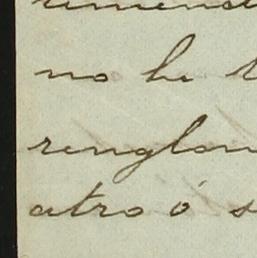 no he
renglon
atro ó s